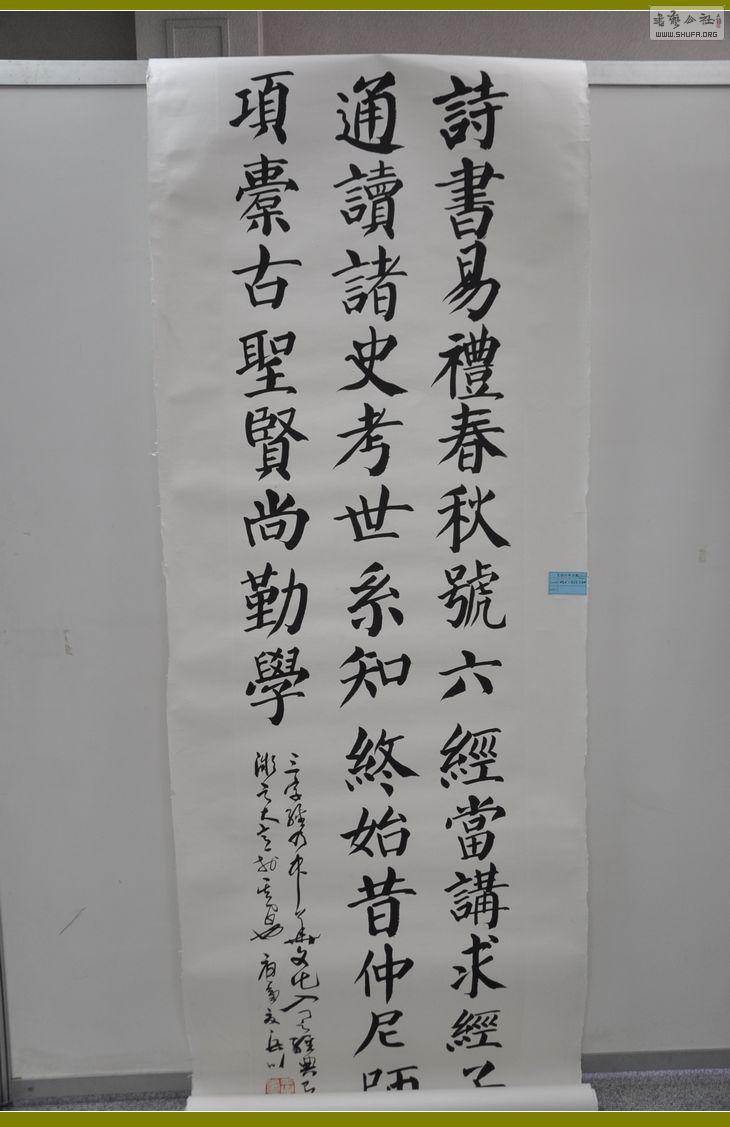 詩書易禮春秋號六經當講求經
通讀諸史考世系知終始昔仲尼師
項橐古聖賢尚勤學
三字經乃中華文化入門經典
WWW.SHUFA.ORG